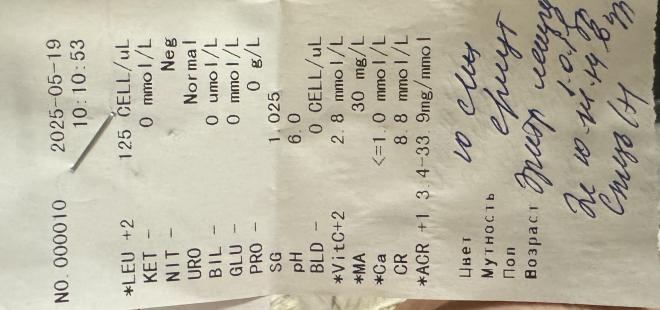 NO. 000010 2025-05-19
10:10:53
*LEU +2 125 CELL/uL
KET - 0 mmol/L
NIT - Neg
URO Normal
BIL - 0 umol/L
GLU - 0 mmol/L
PRO - 0 g/L
SG 1.025
pH 6.0
BLD - 0 CELL/uL
*VitC+2 2.8 mmol/L
*MA 30 mg/L
*Ca <=1.0 mmol/L
CR 8.8 mmol/L
*ACR +1 3.4-33.9mg/mmol
Цвет
Мутность
Поп
Возраст
Слизь (+)